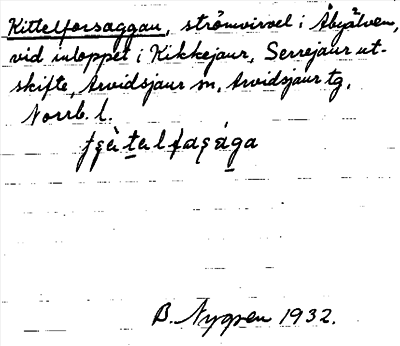 Kittelforsaggan, strömvirvel i Åbyälven,
vid inloppet i Kikkejaur, Serrejaur ut-
skifte, Arvidsjaur sn, Arvidsjaur tg,
Norrb. l.
B. Nygren 1932.